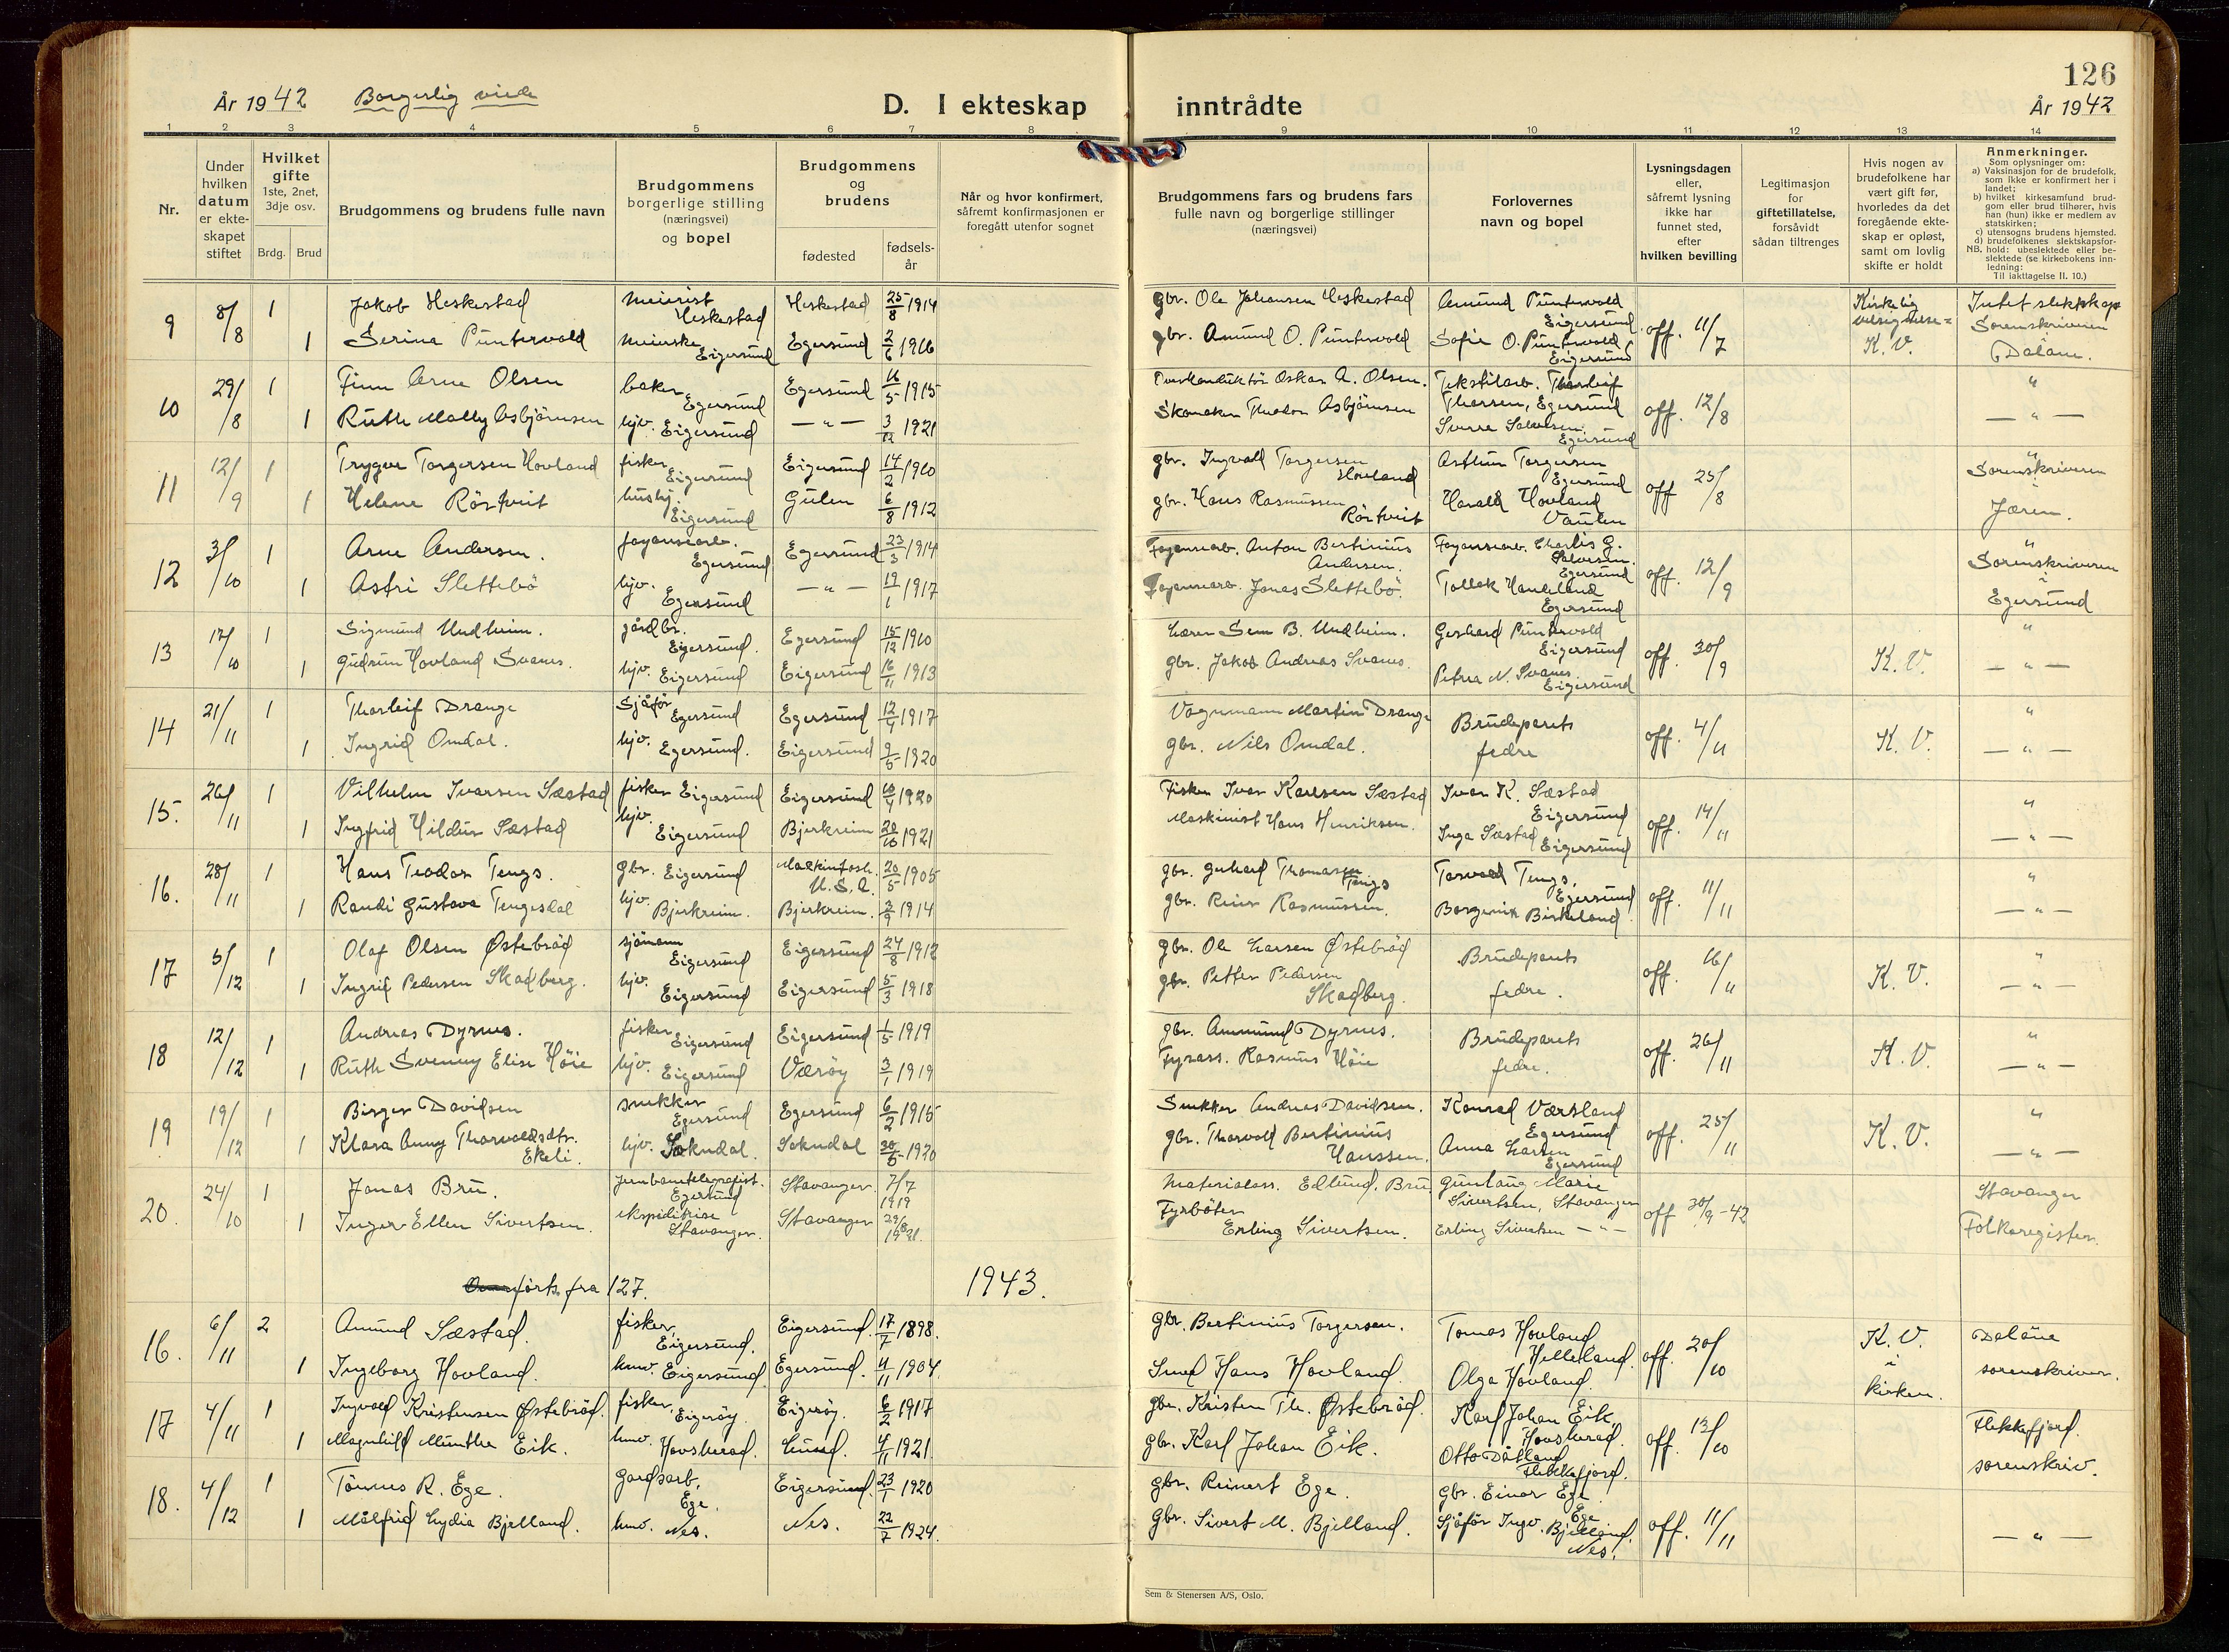 126
År 1942 Borgerlig viede
D. I ekteskap inntrådte
År 1942
1 2 3 4 5 6 7 8 9 10 11 12 13 14
Nr.
Under hvilken datum er ekteskapet stiftet
Hvilket gifte 1ste, 2net, 3dje osv.
Brdg. Brud
Brudgommens og brudens fulle navn
Brudgommens borgerlige stilling (næringsvei) og bopel
Brudgommens og brudens
fødested
fødsels-år
Når og hvor konfirmert, såfremt konfirmasjonen er foregått utenfor sognet
Brudgommens fars og brudens fars fulle navn og borgerlige stillinger (næringsvei)
Forlovernes navn og bopel
Lysningsdagen eller, såfremt lysning ikke har funnet sted, efter hvilken bevilling
Legitimasjon for giftetillatelse, forsåvidt sådan tiltrenges
Hvis nogen av brudefolkene har vært gift før, hvorledes da det foregående ekteskap er opløst, samt om lovlig skifte er holdt
Anmerkninger.
Som oplysninger om:
a) Vaksinasjon for de brudefolk, som ikke er konfirmert her i landet;
b) hvilket kirkesamfund brudgom eller brud tilhører, hvis han (hun) ikke er medlem av statskirken;
c) utensogns brudens hjemsted.
d) brudefolkenes slektskapsforhold: ubeslektede eller beslektede (se kirkebokens innledning:
NB. Til iakttagelse II. 10.)
9 8/8 1 Jakob Heskestad meierist Heskestad Heskestad 25/8 1914 gbr. Ole Johansen Heskestad Amund Puntervold Eigersund off. 11/7 Kirkelig velsignelse = K. V. Intet slektskap
1 Serina Puntervold meierske Eigersund Egersund 2/6 1916 gbr. Amund O. Puntervold Sofie O. Puntervold Eigersund Sorenskriveren i Dalane.
10 29/8 1 Finn Arne Olsen baker Egersund Egersund 16/5 1915 Oskar A. Olsen. Tekstilarb. Thorleif Thorsen, Egersund off. 12/8 "
1 Ruth Molly Asbjørnsen hjv. Eigersund — " — 3/12 1921 Skomaker Theodor Asbjørnsen Sverre Salvesen Egersund — " —
11 12/9 1 Trygve Torgersen Hovland fisker Eigersund Eigersund 14/2 1910 gbr. Ingvald Torgersen Hovland Arthur Torgersen Egersund off 25/8 " Sorenskriveren
1 Helene Röstveit hushj. Eigersund Gulen 6/8 1912 gbr. Hans Rasmussen Röstveit Harald Hovland Vaulen i Jæren.
12 3/10 1 Arne Andersen. fayansearb. Egersund Egersund 23/3 1914 Fayansearb. Anton Bertinius Andersen. Fayansearb. Charlis G. Salvesen. Egersund off. 12/9 " Sorenskriveren
1 Astri Slettebö hjv. Egersund — " — 17/1 1917 Fayansearb. Jonas Slettebö. Tollak Haukland Egersund i Egersund
13 17/10 1 Sigmund Undheim. gårdbr. Eigersund. Egersund 15/12 1910 Lærer Sem B. Undheim. Gerhard Puntervold Eigersund off. 30/9 K. V. "
1 Gudrun Hovland Svanes. hjv. Eigersund Eigersund 16/11 1913 gbr. Jakob Andreas Svanes. Petra N. Svanes Eigersund — " —
14 21/11 1 Thorleif Drange Sjåför Egersund Egersund 12/4 1917 Vognmann Martin Drange Brudeparets off. 4/11 K. V. "
1 Ingrid Omdal. hjv. Egersund. Eigersund 9/5 1920 gbr. Nils Omdal. fedre — " —
15. 26/11 1 Vilhelm Ivarsen Sæstad fisker Eigersund Eigersund 10/4 1920 Fisker Ivar Karlsen Sæstad Ivar K. Sæstad Eigersund off. 14/11 "
1 Ingfrid Hildur Sæstad hjv. Eigersund Bjerkreim 20/10 1921 Maskinist Hans Henriksen. Inga Sæstad Eigersund — " —
16. 28/11 1 Hans Teodor Tengs. gbr. Eigersund Mackintosh. U.S.A. 20/5 1905 gbr. Gerhard Thomassen Tengs Torvald Tengs, Egersund off. 11/11 "
1 Randi Gustava Tengesdal hjv. Bjerkreim. Bjerkreim. 2/9 1914 gbr. Reier Rasmussen. Borgenik Birkeland. — " —
17 5/12 1 Olaf Olsen Østebröd sjömann Eigersund Eigersund 24/8 1912 gbr. Ole Larsen Østebröd Brudeparets off. 16/11 K. V. "
1 Ingrid Pedersen Skadberg. hjv. Eigersund Eigersund 5/3 1918 gbr. Petter Pedersen Skadberg. fedre. — " —
18 12/12 1 Andreas Dyrnes. fisker Eigersund Eigersund 1/5 1919 gbr. Ammund Dyrnes. Brudeparets off. 26/11 K. V. "
1 Ruth Svenny Elise Höie hjv. Eigersund Værøy 3/1 1919 Fyrass. Rasmus Höie fedre. — " —
19 19/12 1 Birger Davidsen snekker Egersund Egersund 6/2 1915 Snekker Andreas Davidsen. Konrad Værsland Egersund off. 25/11 K. V. "
1 Klara Anny Thorvaldsdtr. Ekeli. hjv. Sokndal. Sokndal 30/5 1920 gbr. Thorvald Bertinius Hanssen. Anna Larsen Egersund — " —
20. 24/10 1 Jonas Bru. Jernbanetelegrafist. Egersund Stavanger 7/7 1919 Materialass. Edlund. Bru Gunlaug Marie Sivertsen, Stavanger off 30/9-42 Stavanger
1 Inger Ellen Sivertsen. ekspeditrise Stavanger. Stavanger 29/8 1921. Fyrböter Erling Sivertsen. Erling Sivertsen — " — Folkeregister.
förts fra 127. 1943.
16. 6/11 2 Amund Sæstad. fisker, Eigersund. Eigersund. 17/7 1898. gbr. Bertinius Torgersen. Tomas Hovland Helleland. off. 20/10 K. V. i kirken. Dalane
1 Ingeborg Hovland. hmv. Eigersund. Egersund. 4/11 1904. Smed Hans Hovland. Olga Hovland. sorenskriver.
17 4/11 1 Ingvald Kristensen Østebröd. fisker, Eigeröy. Eigeröy. 6/2 1917 gbr. Kristen Th. Østebröd. Karl Johan Eik, Hovsherad. off. 13/10 Flekkefjord.
1 Magnhild Minthe Eik. hmv. Hovsherad. Lund. 4/11 1921. gbr. Karl Johan Eik. Otto Dåtland Flekkefjord. sorenskriv.
18. 4/12 1 Tönnes R. Ege. Gardsarb, Ege. Eigersund. 23/1 1920 gbr. Reinert Ege. gbr. Einar Ege. Ege off. 11/11
1 Målfrid Lydia Bjelland. hmv. Nes. Nes. 22/7 1924. gbr. Sivert M. Bjelland. Sjåför Ingv. Bjelland. Nes. — " —
Sem & Stenersen A/S, Oslo.